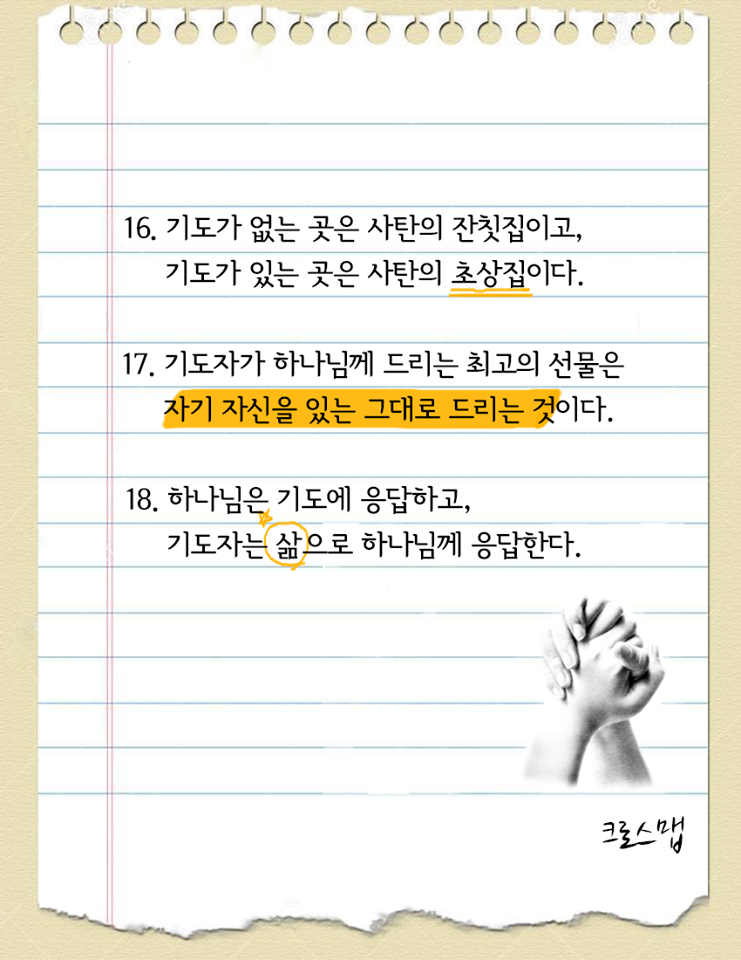 16. 기도가 없는 곳은 사탄의 잔칫집이고,
기도가 있는 곳은 사탄의 초상집이다.
17. 기도자가 하나님께 드리는 최고의 선물은
자기 자신을 있는 그대로 드리는 것이다.
18. 하나님은 기도에 응답하고,
기도자는 삶으로 하나님께 응답한다.
크로스맵